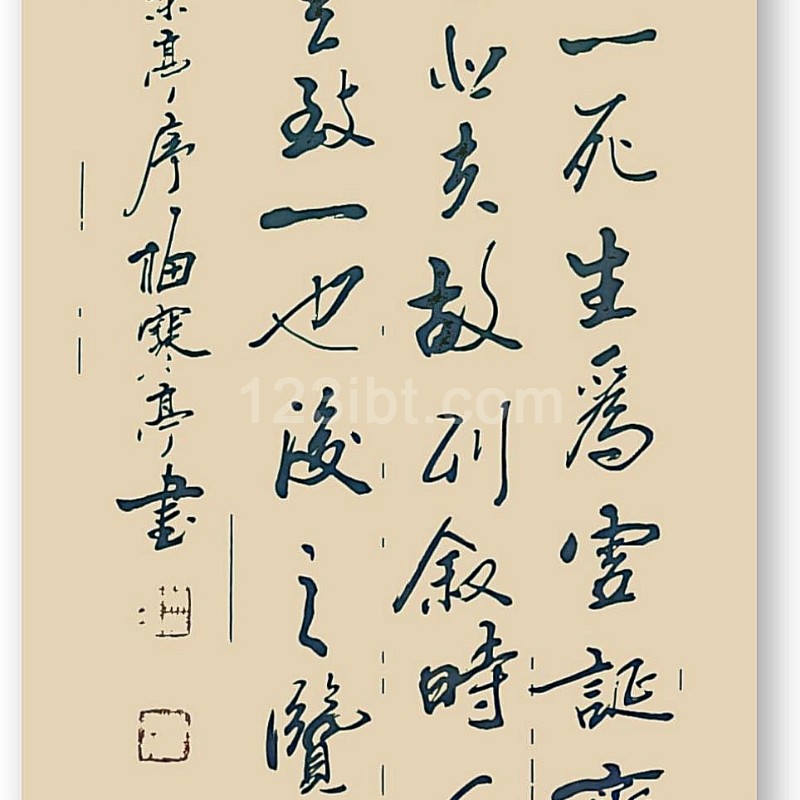 一死生爲虛誕齊
悲夫故列叙時
致一也後之覽
亭序梅寒亭書
123ibt.com